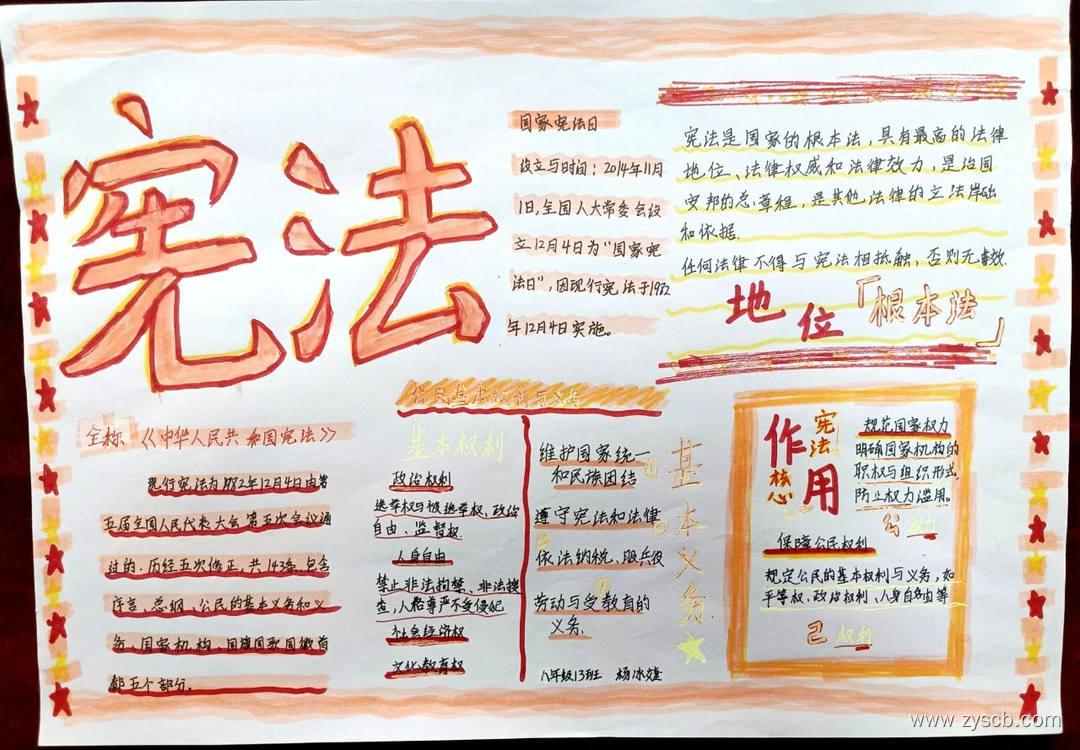 宪法
国家宪法日
设立与时间：2014年11月
1日,全国人大常委会设
立12月4日为"国家宪
法日", 因现行宪法于1982
年12月4日实施。
宪法是国家的根本法，具有最高的法律
地位、法律权威和法律效力，是治国
安邦的总章程，是其他法律的立法基础
和依据.
任何法律不得与宪法相抵触，否则无效.
地位「根本法」
公民基本权利与义务
全称《中华人民共和国宪法》
现行宪法为1982年12月4日由第
五届全国人民代表大会第五次会议通
过的. 历经五次修正, 共143条. 包含
序言、总纲、公民的基本义务和义
务、国家机构、国旗国歌国徽首
都五个部分.
基本权利
政治权利
选举权与被选举权、政治
自由、监督权.
人身自由
禁止非法拘禁、非法搜
查, 人格尊严不受侵犯
社会经济权
文化教育权
维护国家统一
和民族团结
遵守宪法和法律
依法纳税、服兵役
劳动与受教育的
义务.
基本义务.
八年级13班 杨冰婕
宪法
核心
作用
规范国家权力
明确国家机构的
职权与组织形式,
防止权力滥用。
公 权力
保障公民权利
规定公民的基本权利与义务, 如
平等权、政治权利、人身自由等
己 权利
www.zyscb.com